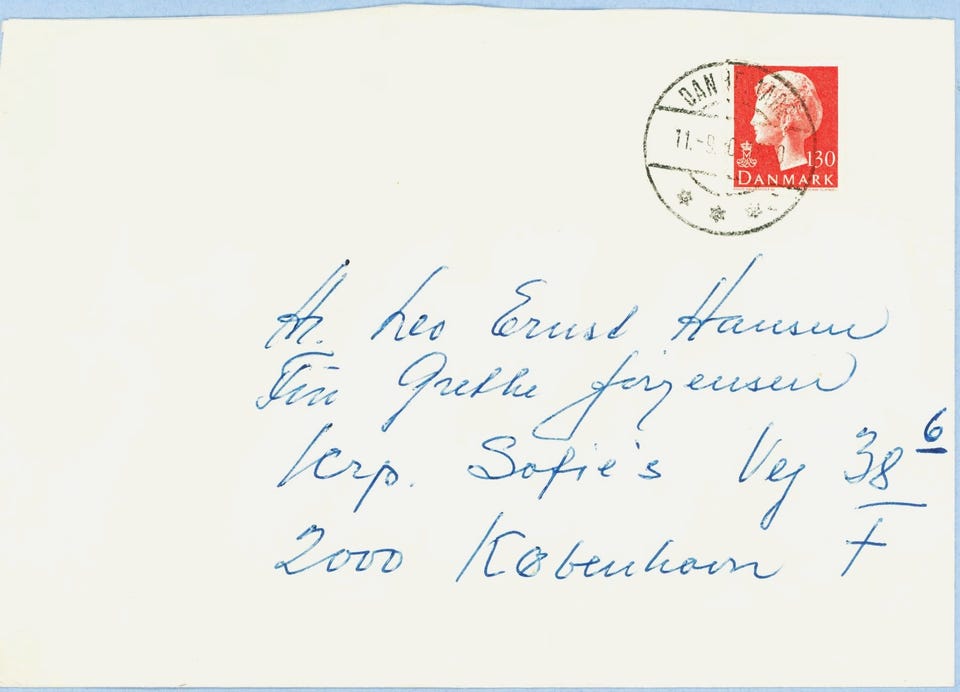 130
DANMARK
11.-9.
Hr. Leo Ernst Hansen
Grethe Jørgensen
Krp. Sofie's Vej 38 6
2000 København F